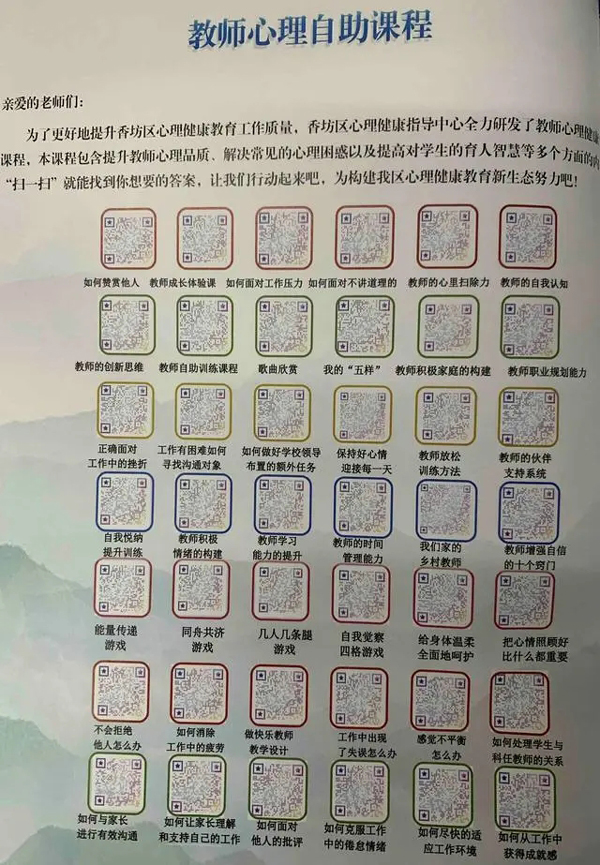 教师心理自助课程
亲爱的老师们：
为了更好地提升香坊区心理健康教育工作质量，香坊区心理健康指导中心全力研发了教师心理健康
课程，本课程包含提升教师心理品质、解决常见的心理困惑以及提高对学生的育人智慧等多个方面的内
“扫一扫”就能找到你想要的答案，让我们行动起来吧，为构建我区心理健康教育新生态努力吧！
如何赞赏他人 教师成长体验课 如何面对工作压力 如何面对不讲道理的 教师的心里扫除力 教师的自我认知
教师的创新思维 教师自助训练课程 歌曲欣赏 我的“五样” 教师积极家庭的构建 教师职业规划能力
正确面对 工作有困难如何 如何做好学校领导 保持好心情 教师放松 教师的伙伴
工作中的挫折 寻找沟通对象 布置的额外任务 迎接每一天 训练方法 支持系统
自我悦纳 教师积极 教师学习 教师的时间 我们家的 教师增强自信
提升训练 情绪的构建 能力的提升 管理能力 乡村教师 的十个窍门
能量传递 同舟共济 几人几条腿 自我觉察 给身体温柔 把心情照顾好
游戏 游戏 游戏 四格游戏 全面地呵护 比什么都重要
不会拒绝 如何消除 做快乐教师 工作中出现 感觉不平衡 如何处理学生与
他人怎么办 工作中的疲劳 教学设计 了失误怎么办 怎么办 科任教师的关系
如何与家长 如何让家长理解 如何面对 如何克服工作 如何尽快的适 如何从工作中
进行有效沟通 和支持自己的工作 他人的批评 中的倦怠情绪 应工作环境 获得成就感